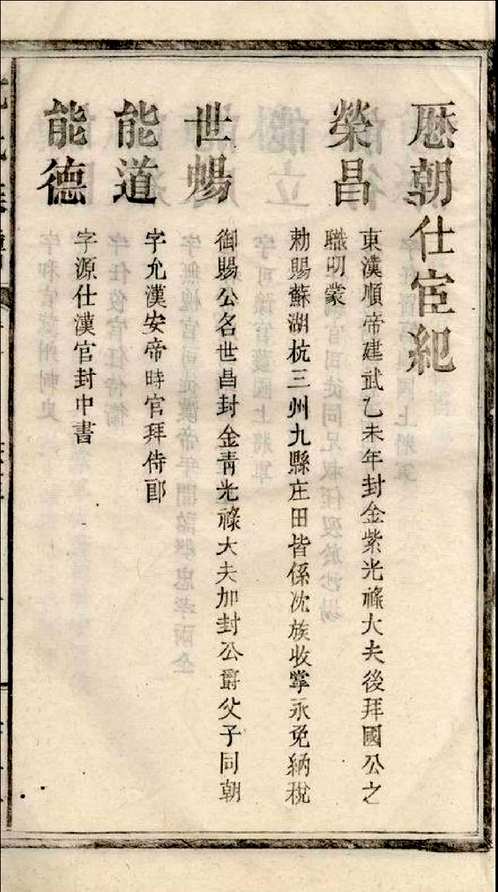 歷朝仕宦紀
榮昌
東漢順帝建武乙未年封金紫光祿大夫後拜國公之
職明蒙
勅賜蘇湖杭三州九縣庄田皆係沈族收掌永免納稅
世暢
御賜公名世昌封金青光祿大夫加封公爵父子同朝
能道
字允漢安帝時官拜侍郎
能德
字源仕漢官封中書